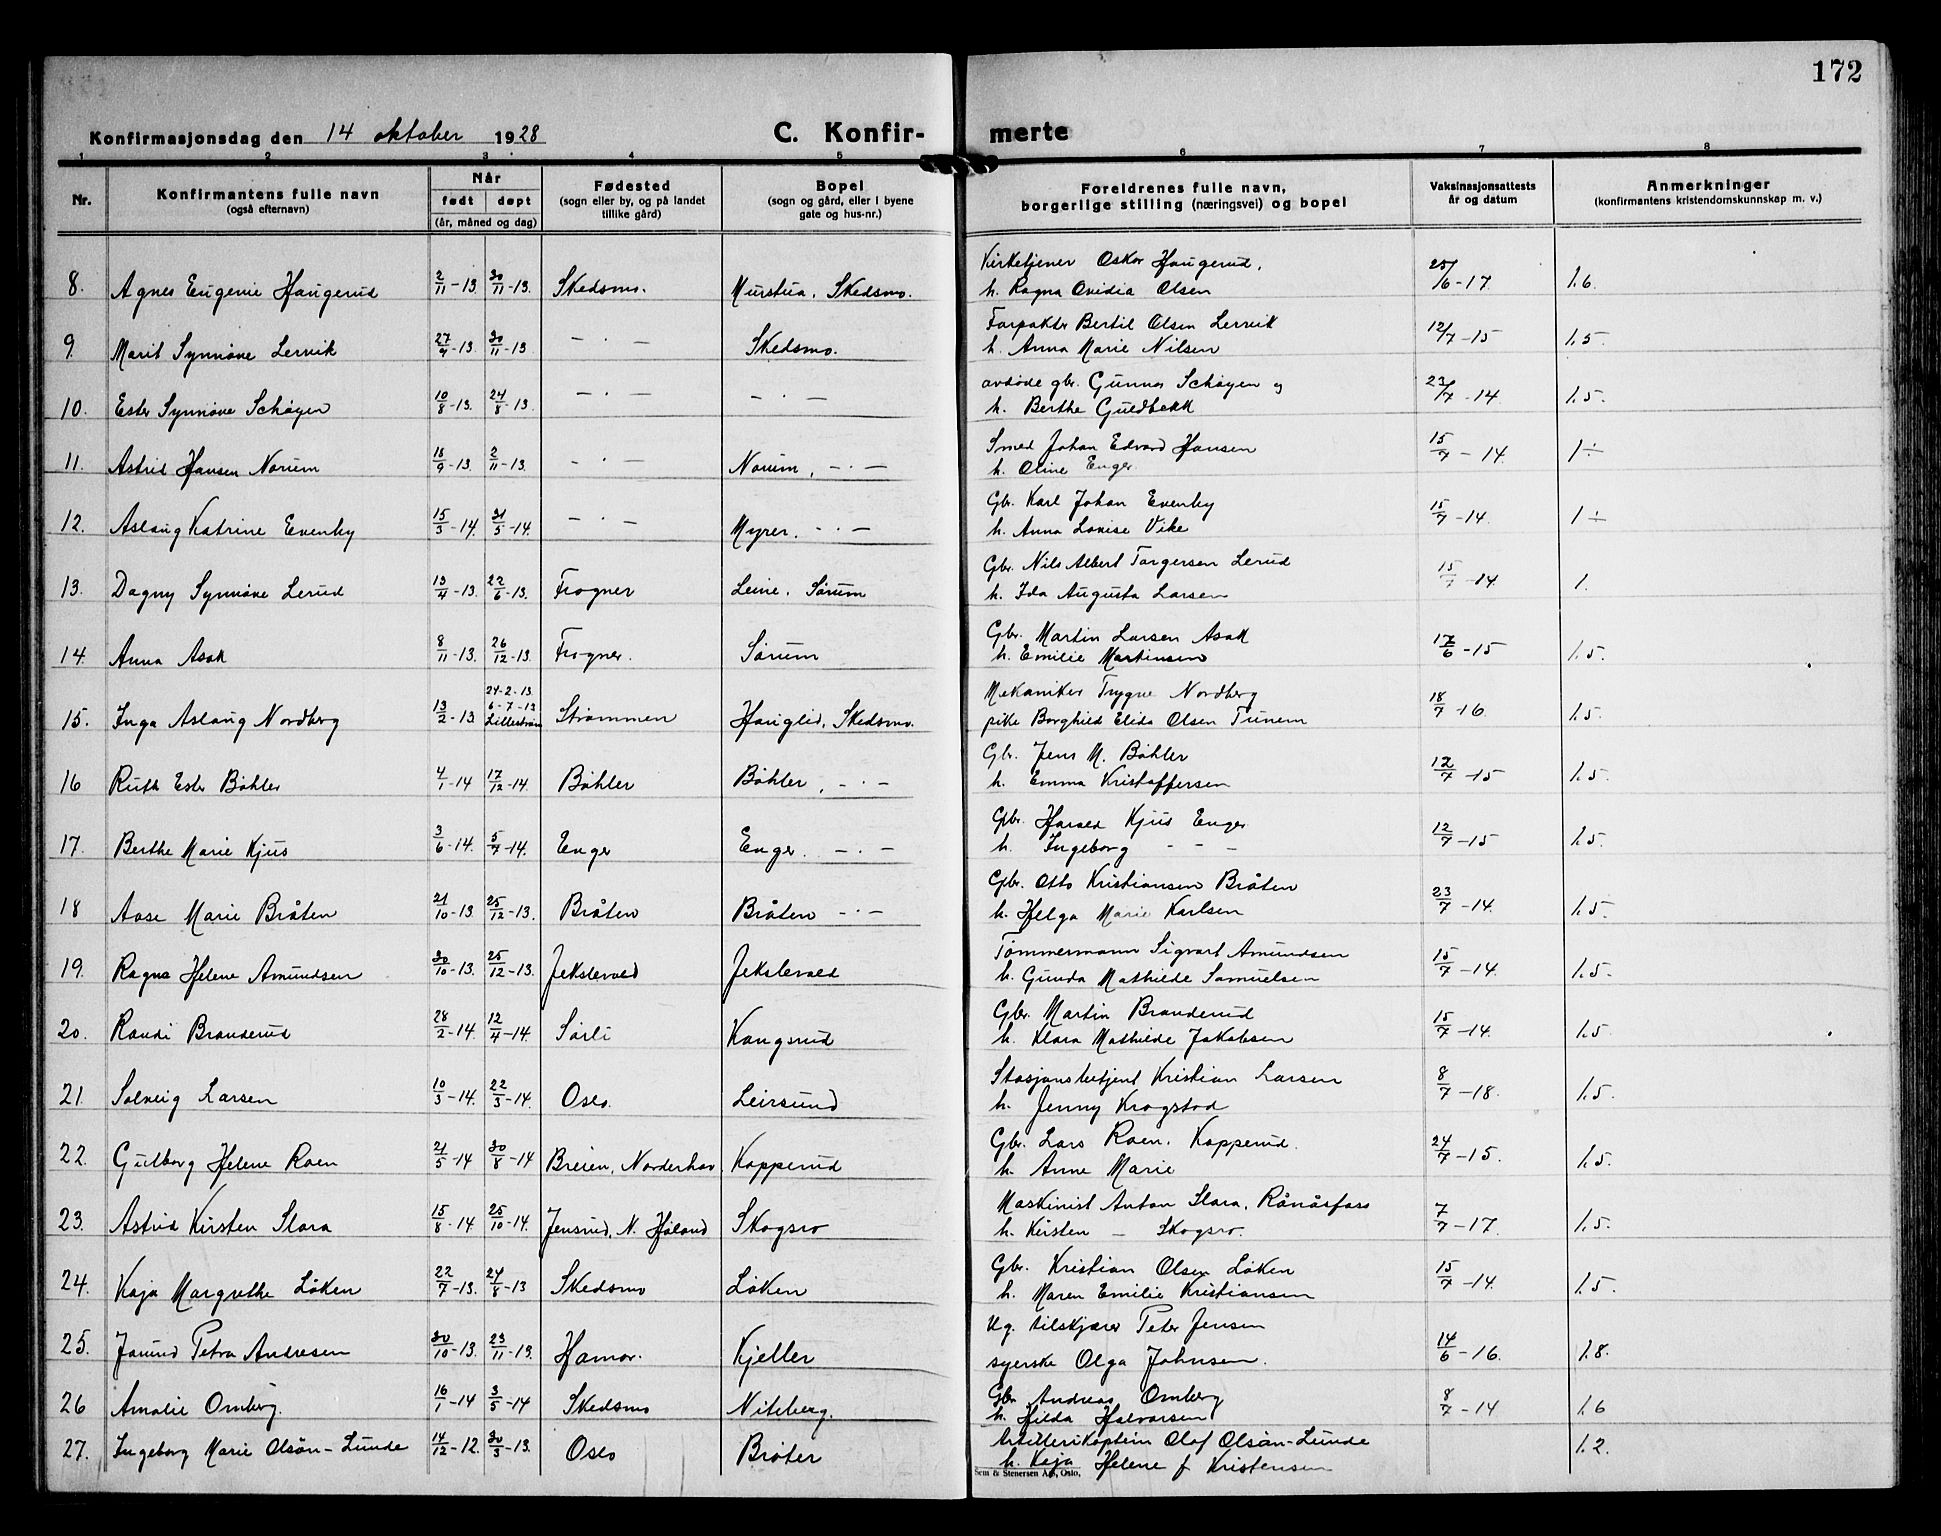 172
Konfirmasjonsdag den 14 oktober 1928 C. Konfir- merte
1 2 3 4 5 6 7 8
Nr. Konfirmantens fulle navn (også efternavn) Når født døpt (år, måned og dag) Fødested (sogn eller by, og på landet tillike gård) Bopel (sogn og gård, eller i byene gate og hus-nr.) Foreldrenes fulle navn, borgerlige stilling (næringsvei) og bopel Vaksinasjonsattests år og datum Anmerkninger (konfirmantens kristendomskunnskap m. v.)
Kirketjener Oskar Haugerud,
8. Agnes Eugenie Haugerud 2/11-13 30/11-13. Skedsmo. Murstua, Skedsmo. h. Ragna Ovidia Olsen 25/6-17 1.6.
Forpakter Bertil Olsen Lervik
9. Marit Synnøve Lervik 27/9-13. 30/11-13 — · — Skedsmo. h. Anna Marie Nilsen 12/7-15 1.5.
avdøde gbr. Gunnar Schøyen og
10. Ester Synnøve Schøyen 10/8-13. 24/8-13. — · — — · — h. Berthe Guldbekk 23/7-14 1.5.
Smed Johan Edvard Hansen
11. Astrid Hansen Norum 18/9-13. 2/11-13. — · — Norum, — · — h. Oline Enger 15/7-14. 1 ÷
Gbr. Karl Johan Evenby
12. Aslaug Katrine Evenby 15/3-14. 31/5-14. — · — Myrer. — · — h. Anna Lovise Vike 15/7-14. 1 ÷
Gbr. Nils Albert Torgersen Lerud
13. Dagny Synnøve Lerud 13/4-13. 22/6-13. Frogner Leine, Sørum h. Ida Augusta Larsen 15/7-14. 1.
Gbr. Martin Larsen Asak
14. Anna Asak 8/11-13. 26/12-13. Frogner. Sørum h. Emilie Martinsen 17/6-15 1.5.
24-2-13 6-7-13 Mekaniker Trygve Nordberg
15. Inga Aslaug Nordberg 13/2-13 Lillestrøm Strømmen Hauglid, Skedsmo. pike Borghild Elida Olsen Tunem 18/7-16 1.5.
Gbr. Jens M. Bøhler
16 Ruth Ester Bøhler 4/1-14 17/12-14. Bøhler Bøhler, — · — h. Emma Kristoffersen 12/7-15 1.5.
Gbr. Harald Kjus Enger
17. Berthe Marie Kjus 3/6-14. 5/7-14. Enger Enger. — · — h. Ingeborg — — — 12/7-15 1.5.
Gbr. Otto Kristiansen Bråten
18 Aase Marie Bråten 21/10-13. 25/12-13. Bråten Bråten — · — h. Helga Marie Karlsen 23/7-14. 1.5.
Tømmermann Sigvart Amundsen
19. Ragna Helene Amundsen 30/10-13. 25/12-13. Jekslevold Jekslevold h. Gunda Mathilde Samuelsen 15/7-14. 1.5.
Gbr. Martin Branderud
20. Randi Branderud 28/2-14. 12/4-14. Sørli Kangsrud h. Klara Mathilde Jakobsen 15/7-14. 1.5.
Stasjonsbetjent Kristian Larsen
21. Solveig Larsen 10/3-14. 22/3-14. Oslo. Leirsund h. Jenny Krogstad 8/7-18. 1.5.
Gbr. Lars Roen. Kopperud.
22. Gulborg Helene Roen 21/5-14 30/8-14 Breien, Norderhov Kopperud h. Anne Marie 24/7-15. 1.5.
Maskinist Anton Slara, Rånåsfoss
23. Astrid Kirsten Slara 15/8-14 25/10-14. Jensrud, N. Høland Skogsro h. Kirsten — Skogsro. 7/7-17. 1.5.
Gbr. Kristian Olsen Løken
24. Kaja Margrethe Løken 22/7-13. 24/8-13 Skedsmo Løken h. Maren Emilie Kristiansen 15/7-14. 1.5.
Ug. tilskjærer Peter Jensen
25. Jorund Petra Andresen 30/10-13. 23/11-13. Hamar. Kjeller syerske Olga Johnsen. 14/6-16. 1.8.
Gbr Andreas Omberg
26 Amalie Omberg. 16/1-14 3/5-14 Skedsmo Niteberg. h. Hilda Halvorsen 8/7-14 1.6
Artillerikaptein Olaf Olsøn-Lunde
27. Ingeborg Marie Olsøn-Lunde 14/12-12. 30/3-13. Oslo Brøter h. Kaja Helene f Kristensen 1.2.
Sem & Stenersen A/S, Oslo,